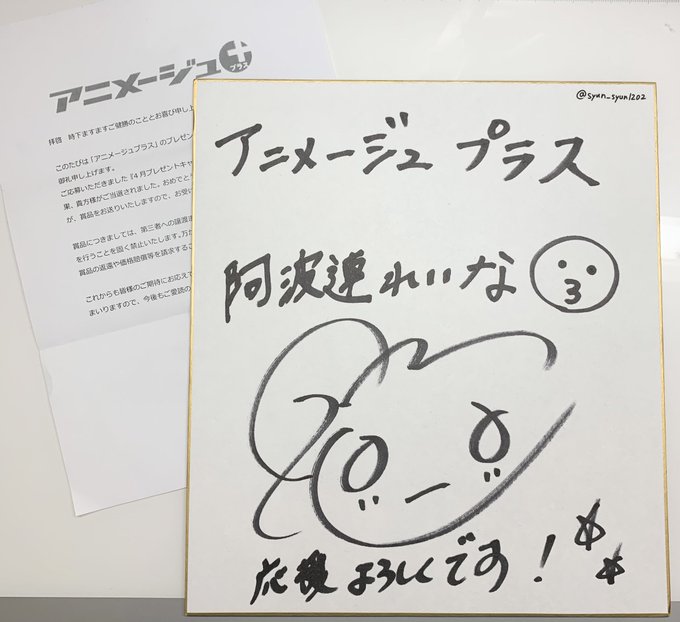 アニメージュプラス
拝啓 時下ますますご健勝のこととお喜び申し上
このたびは「アニメージュプラス」のプレゼン
御礼申し上げます。
ご応募いただきました『4月プレゼントキャ
果、貴方様がご当選されました。おめでと
が、賞品をお送りいたしますので、お受け
賞品につきましては、第三者への譲渡ま
を行うことを固く禁止いたします。万が
賞品の返還や価格賠償等を請求するこ
これからも皆様のご期待にお応えす
まいりますので、今後もご愛読の
@syun_syun1202
アニメージュ プラス
阿波連れいな
応援よろしくです!